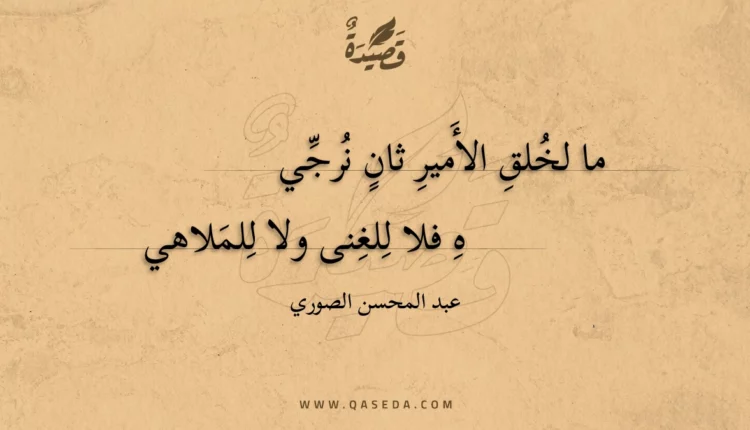 قَصِيدَةٌ
ما لخُلقِ الأَميرِ ثانٍ نُرجِّي
هِ فلا لِلغِنى ولا لِلمَلاهي
عبد المحسن الصوري
WWW.QASEDA.COM